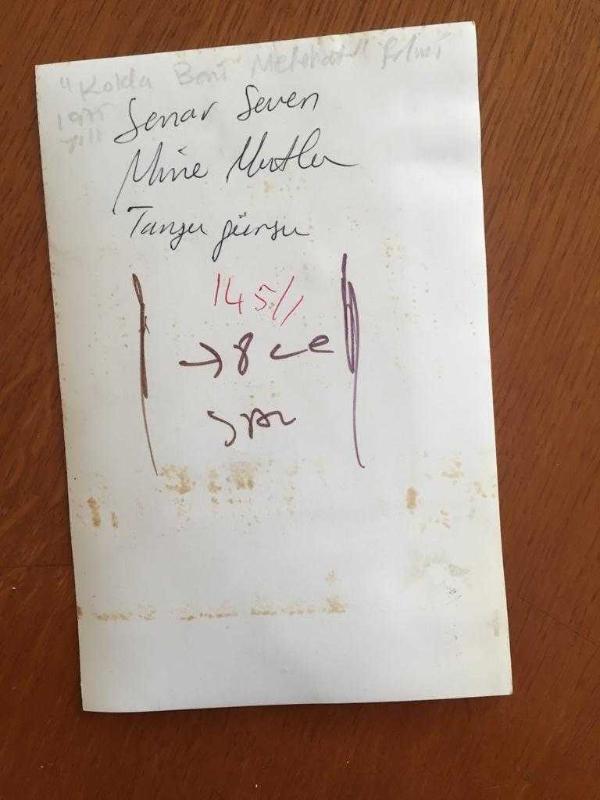 "Kolda Beni Melahat" filmi
1975
yılı
Senar Seven
Mine Mutlu
Tanju gürsu
145//